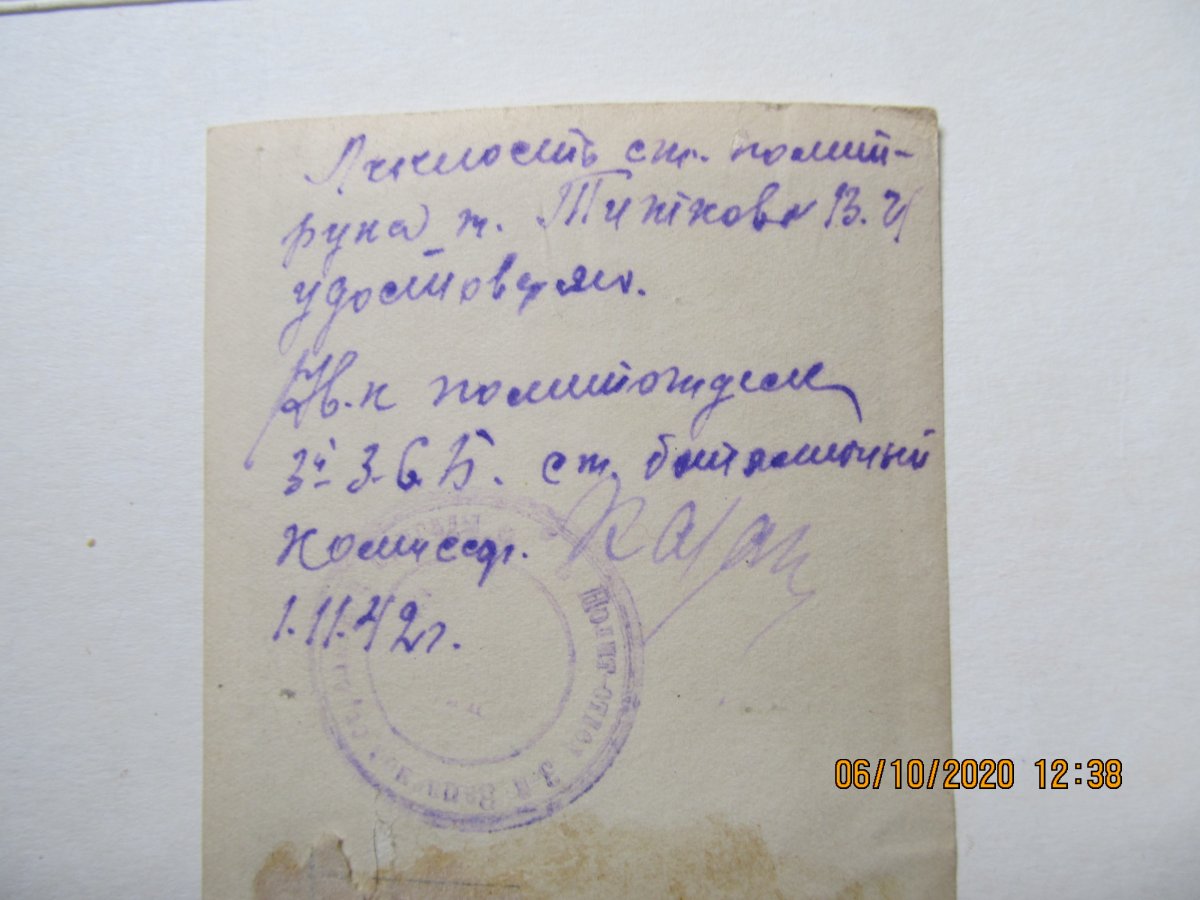 Личность ст. полит-
рука т. Титкова В.И
удостоверяю.
политотдела
3й З.С.Б. ст. батальонный
комиссар.
1.11.42г.
Полит-отдел 3-й
06/10/2020 12:38